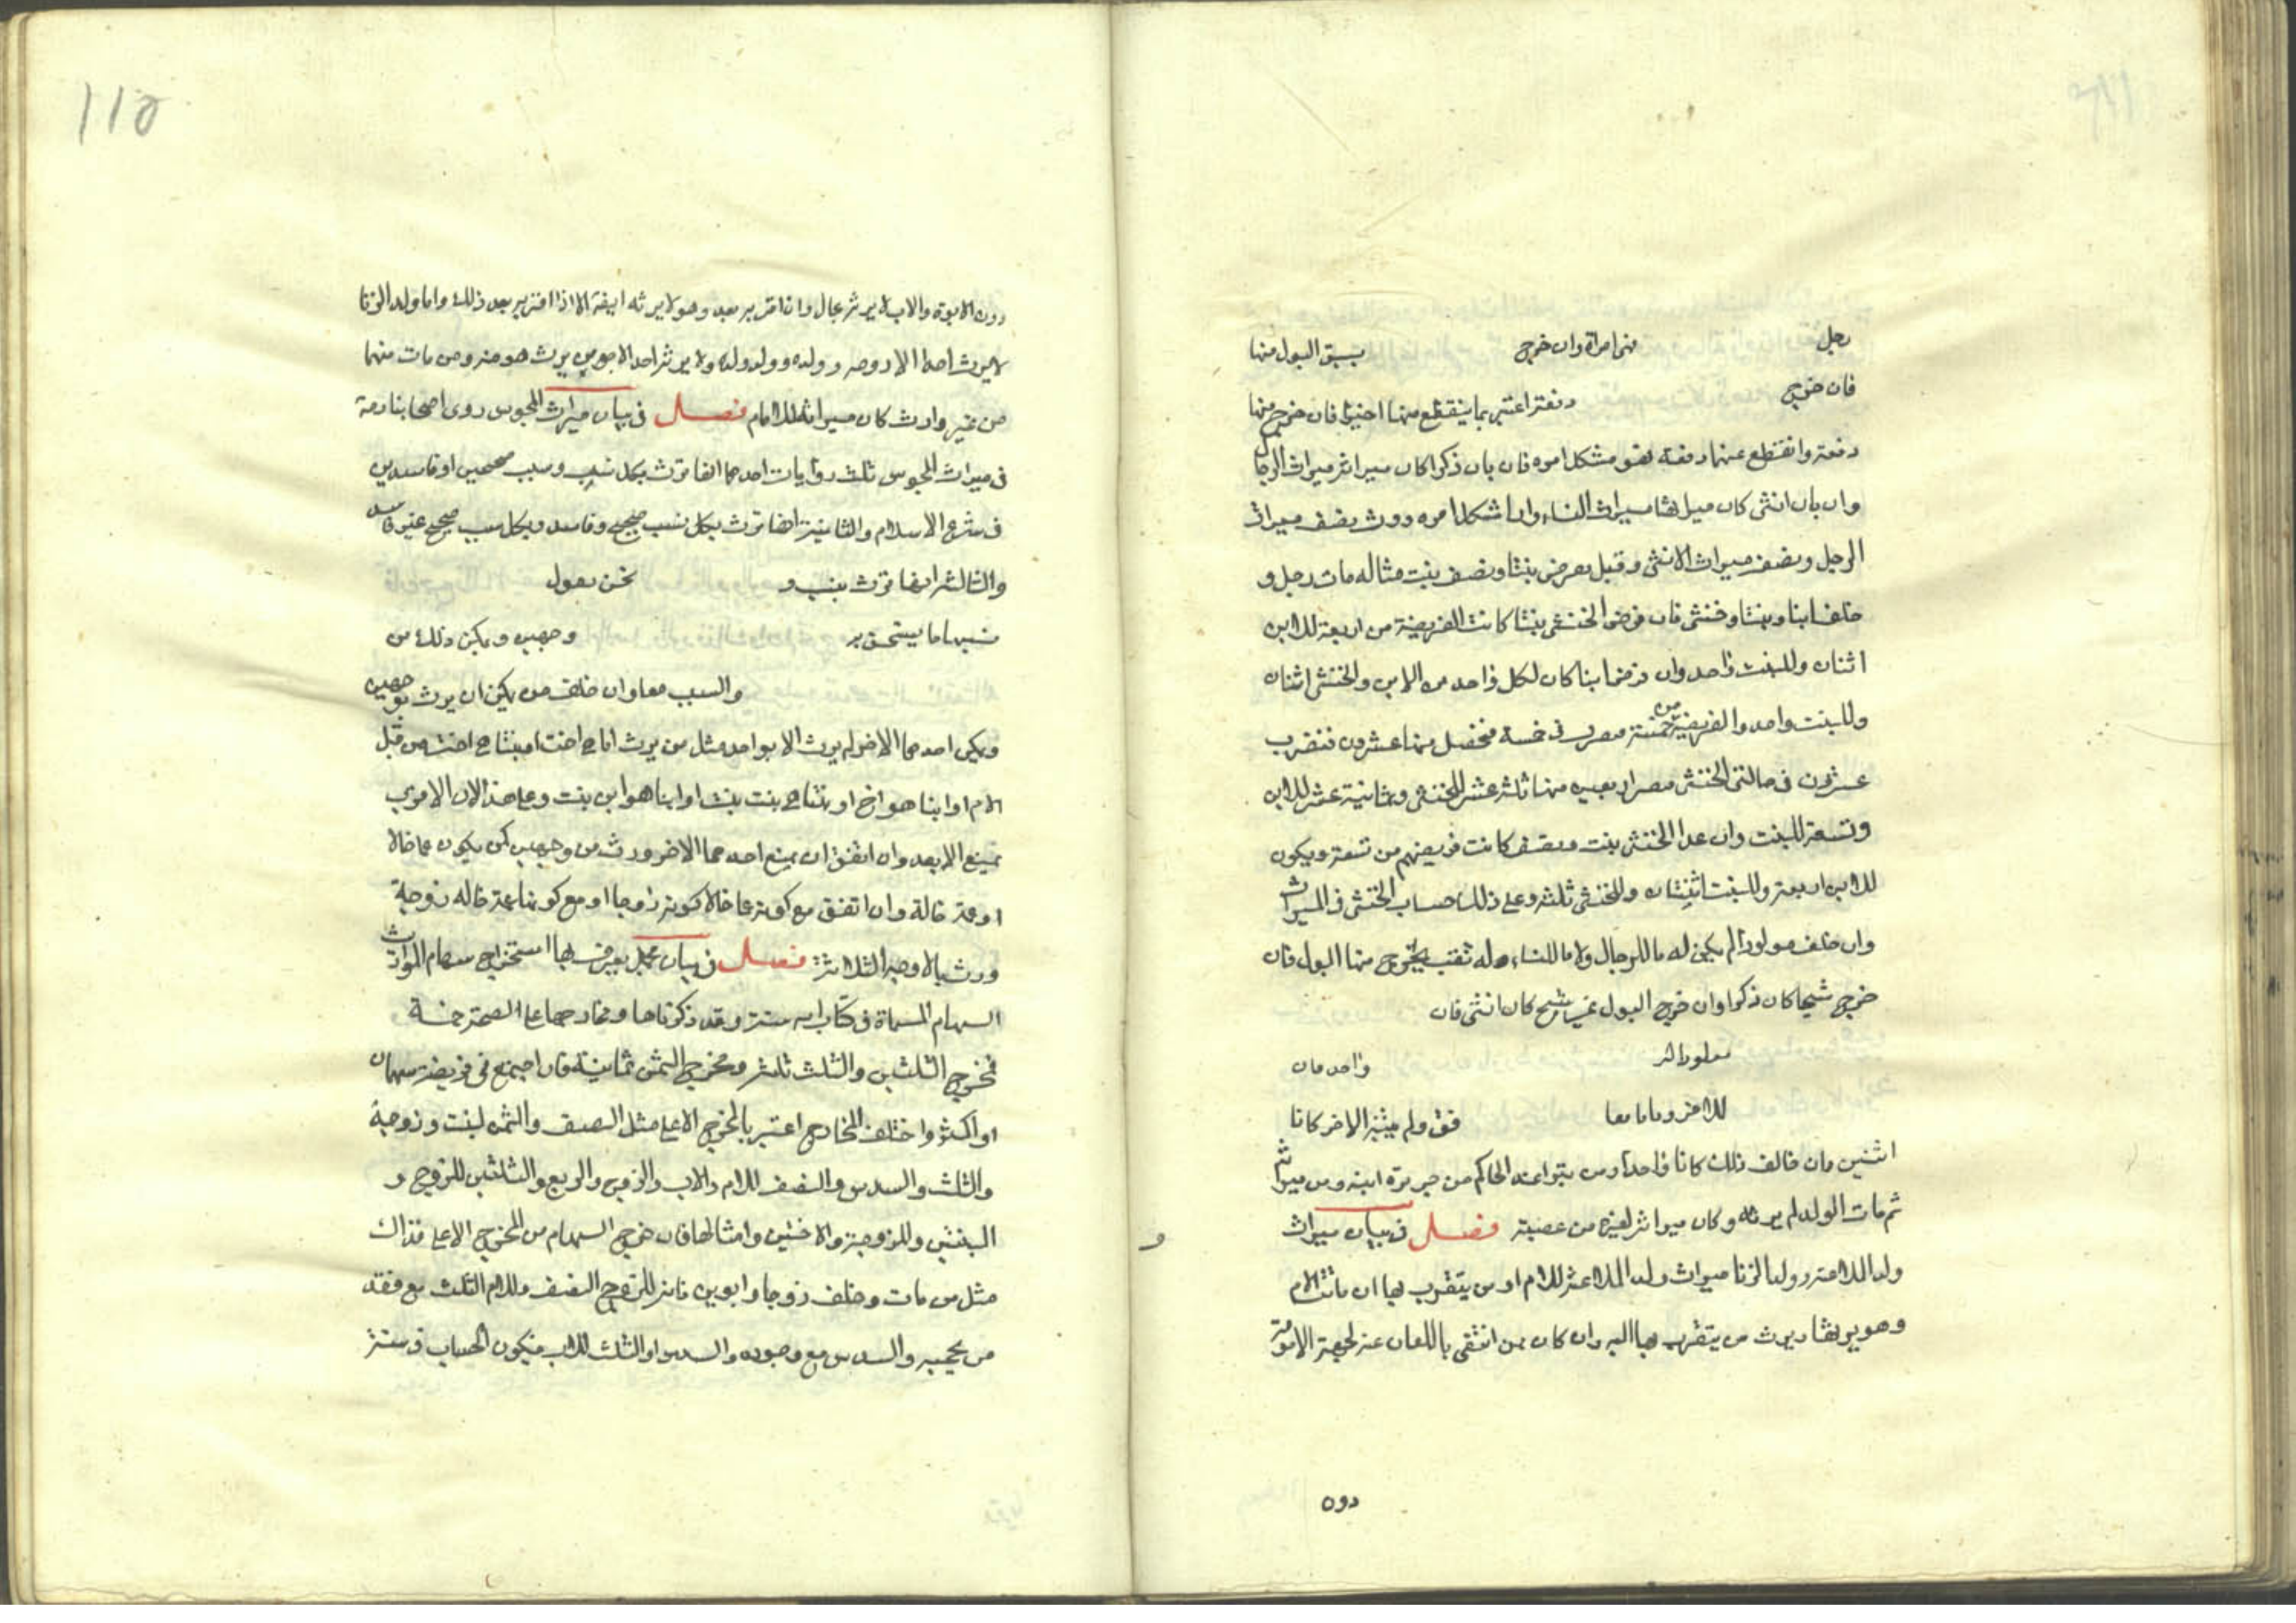 رجل فهى امراة وان خرج يسبق البول منها
فان خرج دفعة اعتبر بما ينقطع منها اخيرا فان خرج منها
دفعة وانقطع عنها دفعة فهو مشكل امره فان بان ذكرا كان ميراثه ميراث الرجال
وان بان انثى كان ميراثها ميراث النساء وان اشكل امره ورث نصف ميراث
الرجل ونصف ميراث الانثى وقيل يفرض بنتا ونصف بنت مثاله مات رجل و
خلف ابنا وبنتا وخنثى فان فرض الخنثى بنتا كانت الفريضة من اربعة للابن
اثنان وللبنت واحد وان فرضا ابنا كان لكل واحد من الابن والخنثى اثنان
وللبنت واحد والفريضة من خمسة فى خمسة فتحصل منها عشرون فتضرب
عشرون فى حالتى الخنثى اربعين منها ثلثة عشر للخنثى وثمانية عشر للابن
وتسعة للبنت وان عد الخنثى بنت ونصف كانت فريضتهم من تسعة ويكون
للابن اربعة وللبنت اثنتان وللخنثى ثلثة وعلى ذلك حساب الخنثى فى الميراث
وان خلف مولودا لم يكن له ما للرجال ولا ما للنساء وله ثقب يخرج منها البول فان
خرج شيحا كان ذكرا وان خرج البول غير شيح كان انثى فان
مولودا له واحد فان
للاخر وناما معا فق ولم ينتبه الاخر كانا
اثنين فان خالف ذلك كانا واحدا ومن تبرا عند الحاكم من جريرة ابنه ومن ميراثه
ثم مات الولد لم يرثه وكان ميراثه لغيره من عصبته فصل فى بيان ميراث
ولد الملاعنة وولد الزنا ميراث ولد الملاعنة للام او من يتقرب بها ان ماتت الام
وهو يرثها ويرث من يتقرب بها اليه وان كان ممن انتفى باللعان عنه لجهة الامومة
دون
115
دون الابوة والاب لا يرثه بحال وان اقر به بعد وهو لا يرثه ابيه الا اذا اقر به بعد ذلك واما ولد الزنا
لا يرث احدا الا زوجه وولده وولد ولده ولا يرثه احد الابوين يرث هو منه ومن مات منهما
من غير وارث كان ميراثه للامام فصل فى بيان ميراث المجوس روى اصحابنا رحمة
فى ميراث المجوس ثلث روايات احدهما انها تورث بكل نسب وسبب صحيحين او فاسدين
فى شرع الاسلام والثانية انها تورث بكل نسب صحيح وفاسد وبكل سبب صحيح غير فاسد
والثالثة انها تورث بنسب و نحن نعول
نسبها ما يستحق به وجهين ويمكن ذلك من
والسبب معا وان خلف من يمكن ان يرث بوجهين
ويكن احدهما الاخر لم يرث الا بواحد مثل من يرث اما هى اخت او بنتا هى اخت من قبل
الام او ابنا هو اخ او بنتا هى بنت بنت او ابنا هو ابن بنت وعلى هذا لان الاقرب
يمنع الابعد وان اتفق ان يمنع احدهما الاخر ورث من وجهين كمن يكون عما خالا
او عمة خالة وان اتفق مع كونه عما خالا كونه زوجا او مع كونها عمة خاله زوجة
ورث بالاوجه الثلاثة فصل فى بيان مجمل يعرف بها استخراج سهام المواريث
السهام المسماة فى كتاب الله ستة وقد ذكرناها ومخارجها على الصحة خمسة
فمخرج الثلثين والثلث ثلثة ومخرج الثمن ثمانية فان اجتمع فى فريضة سهمان
او اكثر واختلف المخارج اعتبر بالمخرج الاعلى مثل النصف والثمن لبنت وزوجة
والثلث والسدس والنصف للام والاب والزوج والربع والثلثين للزوج و
البنتين وللزوجة والاختين وامثالها فان خرج السهام من المخرج الاعلى فذاك
مثل من مات وخلف زوجا وابوين فانه للزوج النصف وللام الثلث مع فقد
من يحجبه والسدس مع وجوده والسدس او الثلث للاب فيكون الحساب فى ستة